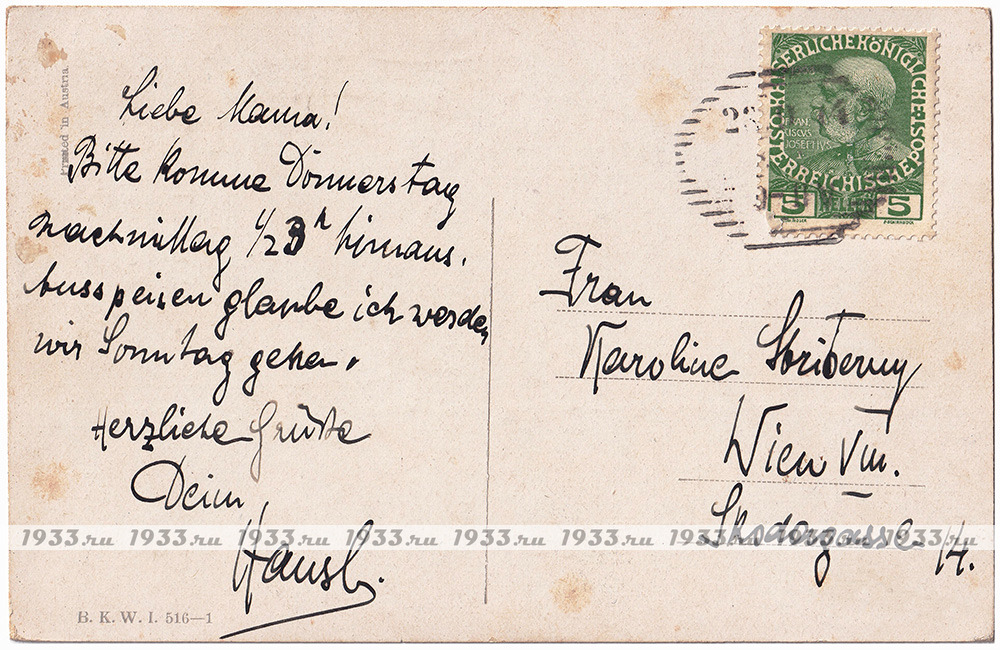 Printed in Austria.
Liebe Mama!
Bitte komme Donnerstag
nachmittag 1/2 3 h hinaus.
Ausspeisen glaube ich werden
wir Sonntag gehen.
Herzliche Grüße
Dein
Hansl.
B. K. W. I. 516—1
KAISERLICHEKÖNIGLICHE
ÖSTERREICHISCHE
FRAN
CISCUS
JOSEPHVS
5 HELLER 5
Frau
Karoline
Wien VIII.
Skodagasse 14.
1933.ru 1933.ru 1933.ru 1933.ru 1933.ru 1933.ru 1933.ru 1933.ru 1933.ru